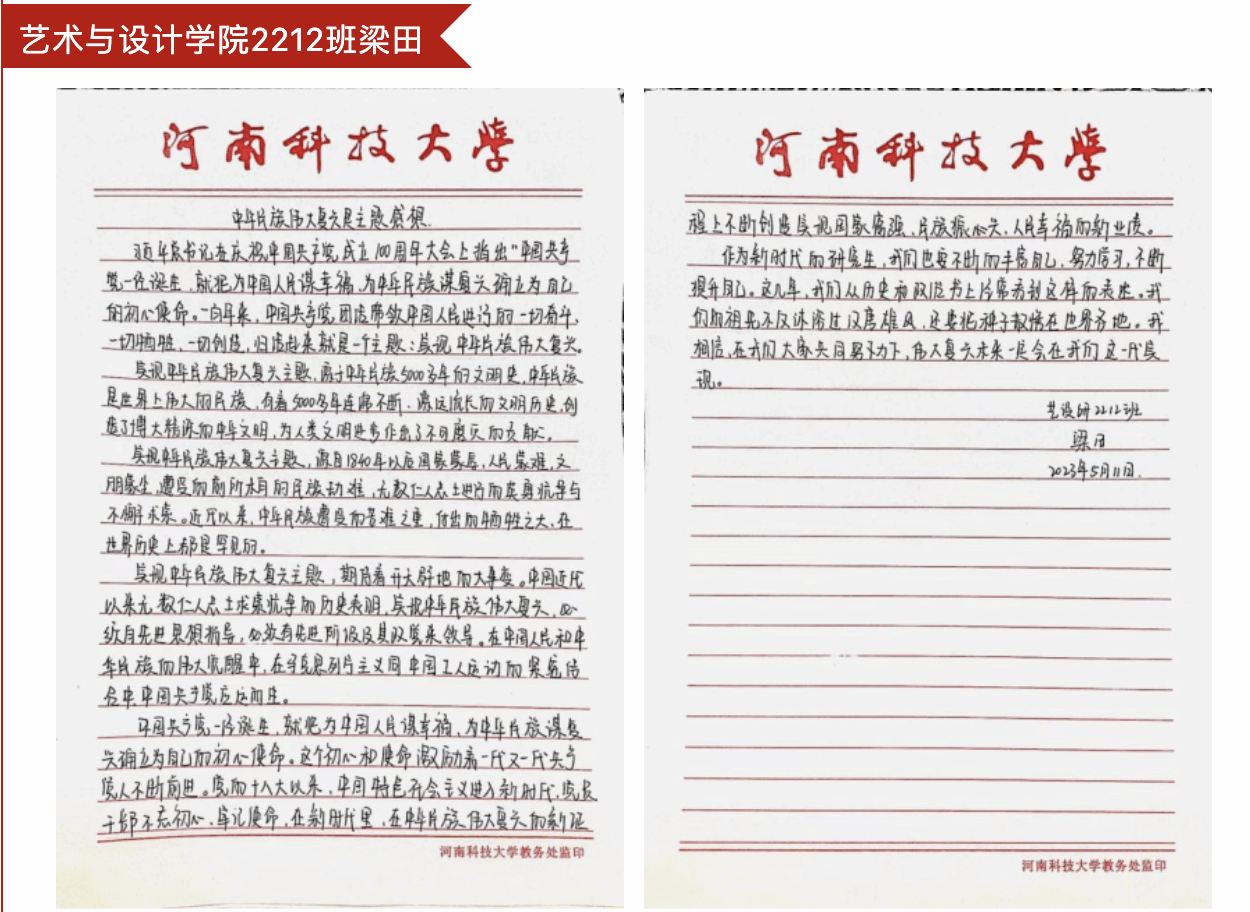 艺术与设计学院2212班梁田
河南科技大学
中华民族伟大复兴是主题感想.
习近平总书记在庆祝中国共产党成立100周年大会上指出“中国共产
党一经诞生,就把为中国人民谋幸福,为中华民族谋复兴确立为自己
的初心使命。一百年来,中国共产党团结带领中国人民进行的一切奋斗,
一切牺牲,一切创造,归结起来就是一个主题:实现中华民族伟大复兴。
实现中华民族伟大复兴主题,源于中华民族5000多年的文明史,中华民族
是世界上伟大的民族,有着5000多年连绵不断、源远流长的文明历史,创
造了博大精深的中华文明,为人类文明进步作出了不可磨灭的贡献。
实现中华民族伟大复兴主题,源自1840年以后国家蒙辱,人民蒙难,文
明蒙尘,遭受的前所未有的民族劫难,无数仁人志士进行的英勇抗争与
不懈求索。近代以来,中华民族遭受的苦难之重,付出的牺牲之大,在
世界历史上都是罕见的。
实现中华民族伟大复兴主题,期待着开天辟地的大事变。中国近代
以来无数仁人志士求索抗争的历史表明,实现中华民族伟大复兴,必
须有先进思想指导,必须有先进阶级及其政党来领导。在中国人民和中
华民族的伟大觉醒中,在马克思列宁主义同中国工人运动的紧密结
合中,中国共产党应运而生。
中国共产党一经诞生,就把为中国人民谋幸福,为中华民族谋复
兴确立为自己的初心使命。这个初心和使命激励着一代又一代共产
党人不断前进。党的十八大以来,中国特色社会主义进入新时代,党员
干部不忘初心、牢记使命,在新时代里,在中华民族伟大复兴的新征
河南科技大学教务处监印
河南科技大学
程上不断创造实现国家富强、民族振兴、人民幸福的新业绩。
作为新时代的研究生,我们也要不断的丰富自己,努力学习,不断
提升自己。这几年,我们从历史和政治书上经常看到这样的表述。我
们的祖先不仅沐浴过汉唐雄风,还要把种子散播在世界各地。我
相信,在我们大家共同努力下,伟大复兴未来一定会在我们这一代实
现。
艺设研2212班
梁田
2023年5月11日.
河南科技大学教务处监印